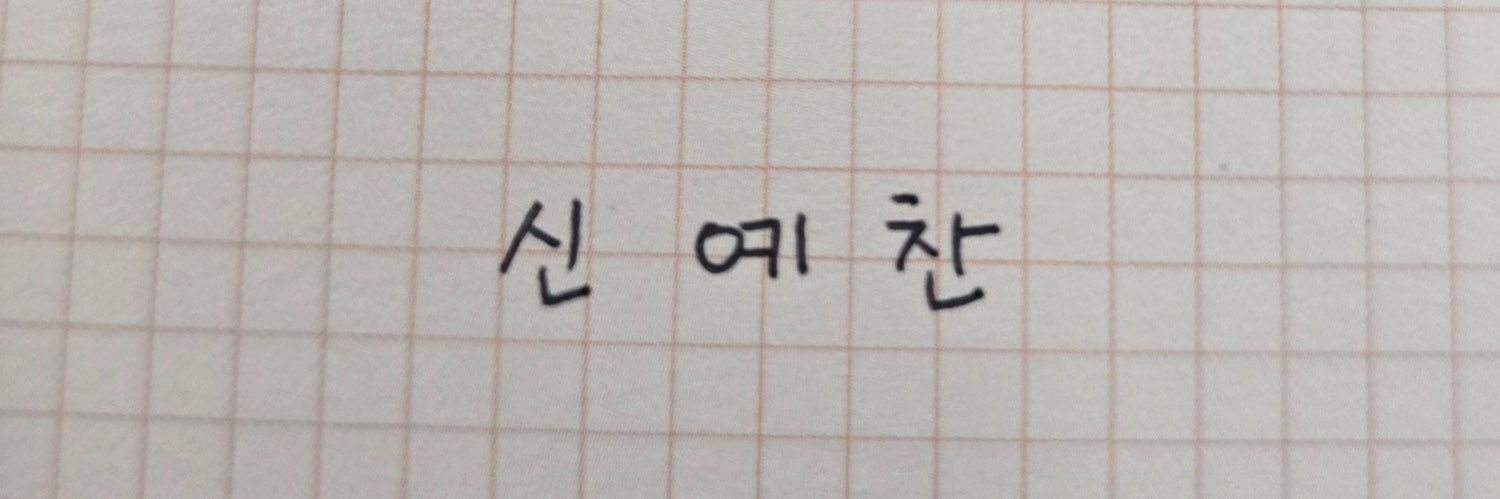 신 예 찬